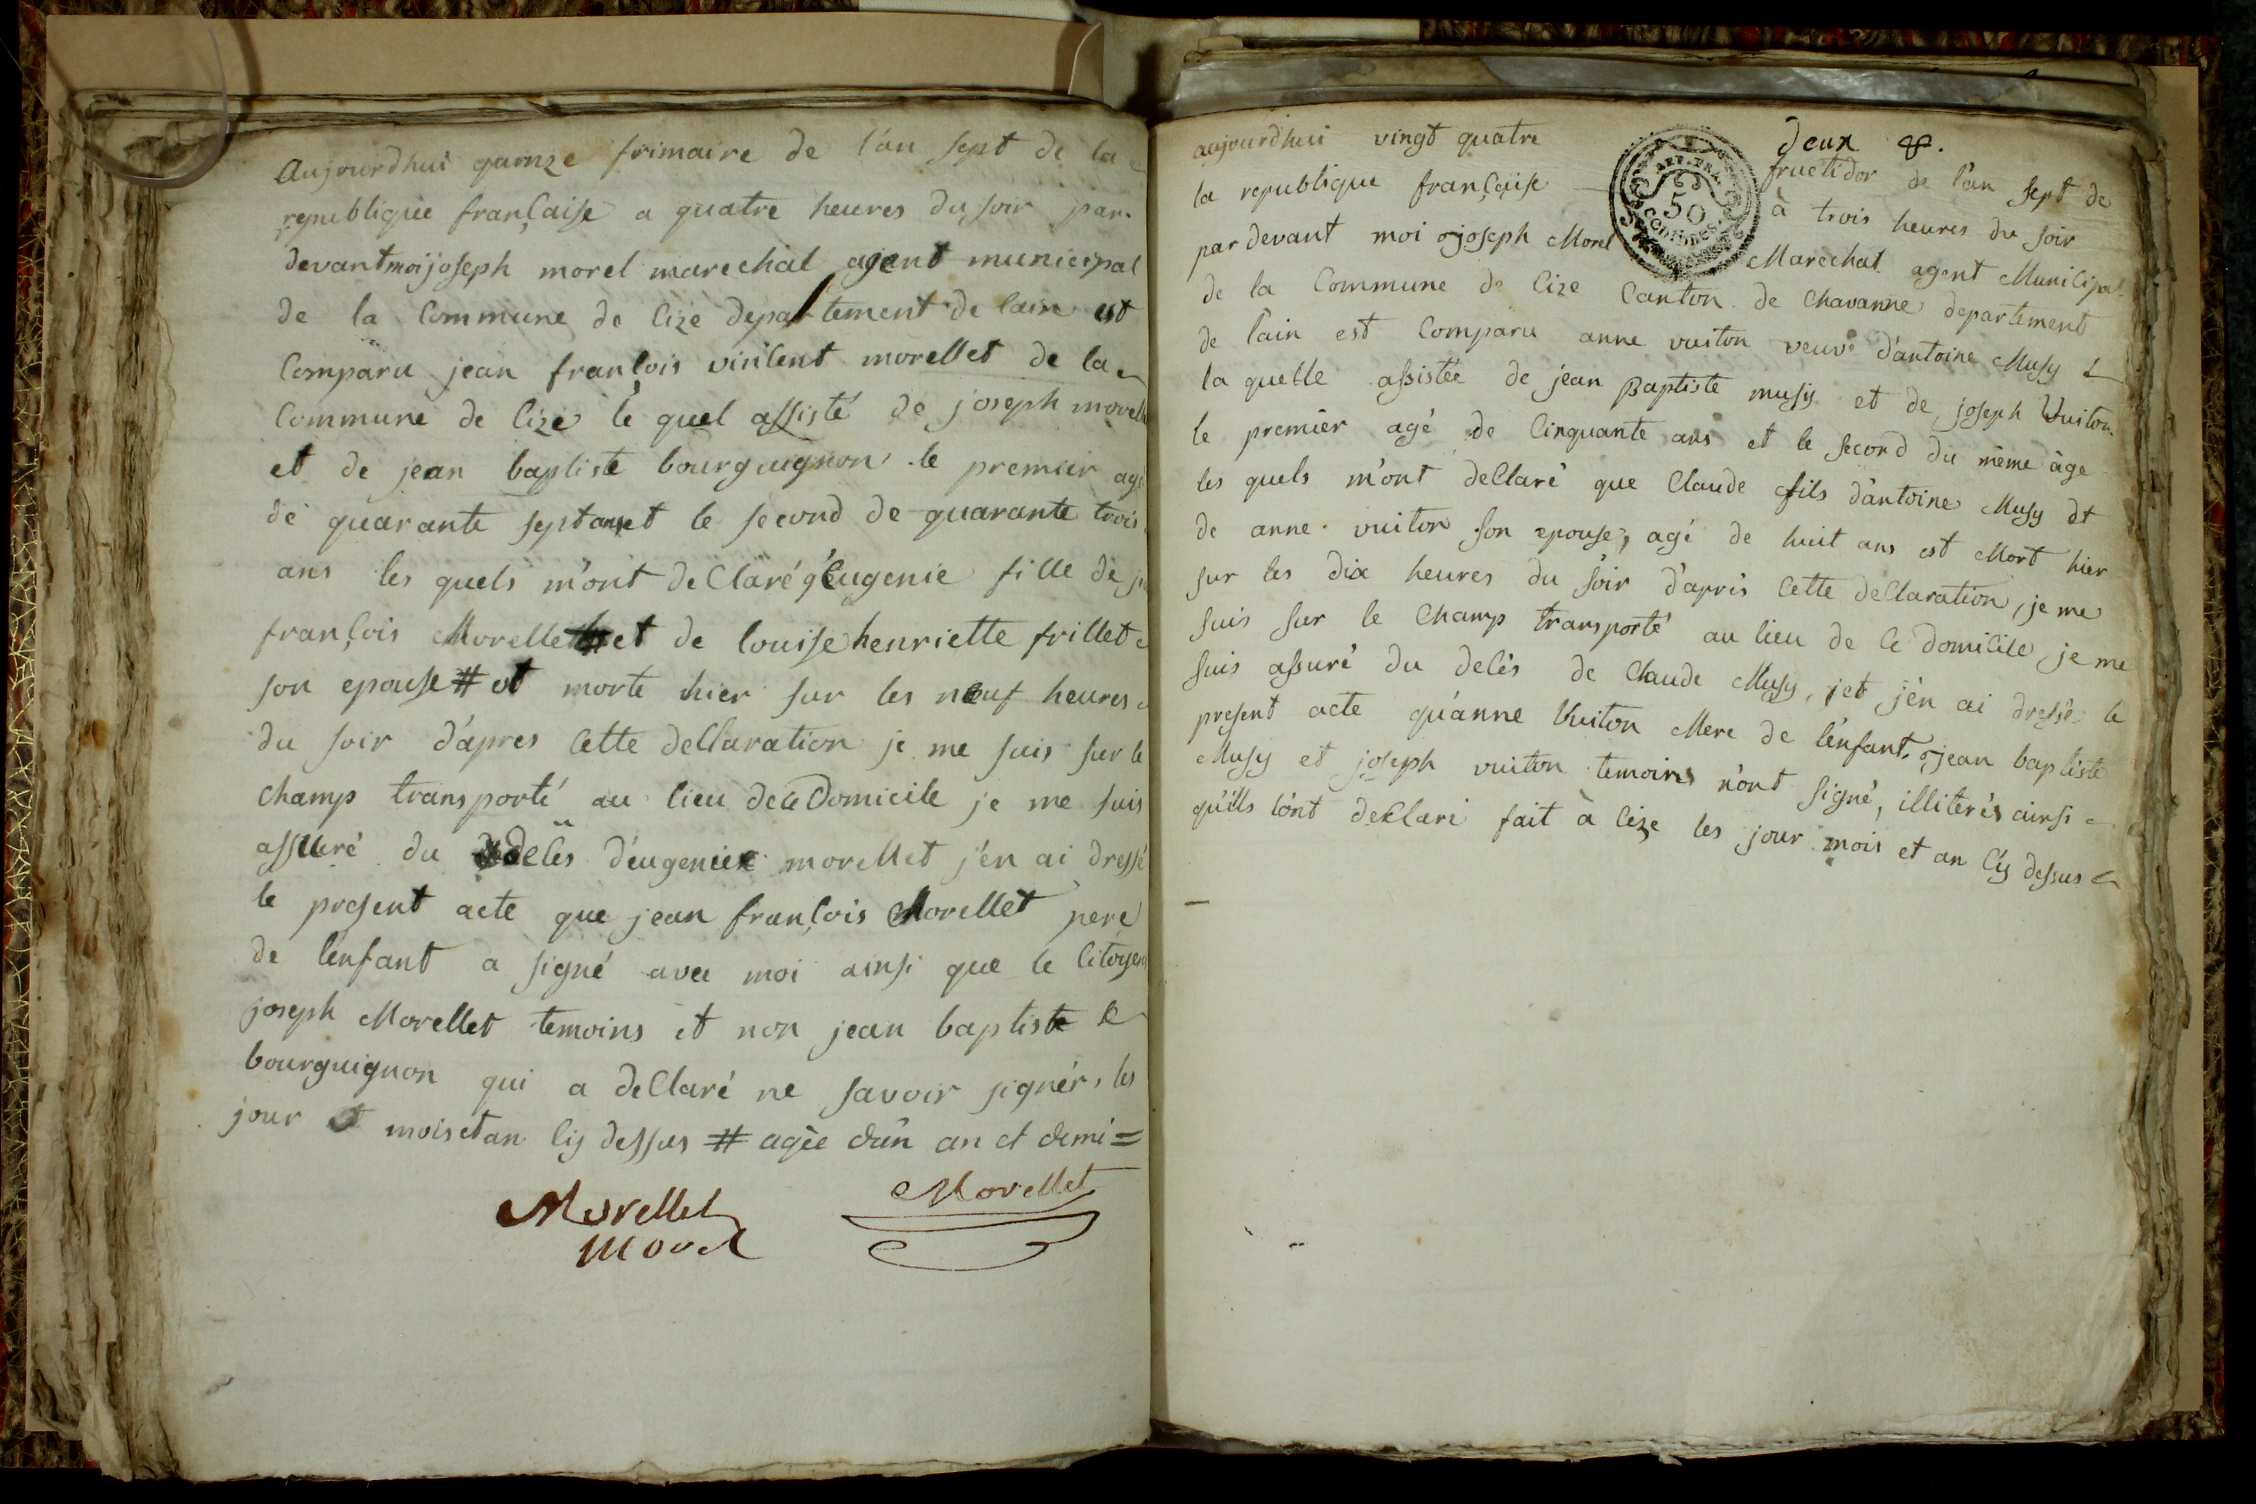 Aujourdhui quinze frimaire de l'an sept de la
republique française a quatre heures du soir par
devant moi joseph morel marechal agent municipal
de la Commune de Cize departement de lain est
Comparu jean françois vincent morellet de la
Commune de Cize le quel assisté de joseph morel
et de jean baptiste bourguignon le premier agé
de quarante sept ans et le second de quarante trois
ans les quels m'ont declaré q'Eugenie fille de
françois Morellet et de louise henriette frillet
son epouse # est morte hier sur les neuf heures
du soir d'apres cette declaration je me suis sur le
champ transporté au lieu de ce Domicile je me suis
assuré du decès d'eugenie morellet j'en ai dressé
le present acte que jean françois Morellet pere
de lenfant a signé avec moi ainsi que le Citoyen
joseph Morellet temoins et non jean baptiste
bourguignon qui a declaré ne savoir signér, les
jour et mois et an cy dessus # agèe d'un an et demi =
Morellet Morellet
Morel
deux
aujourdhui vingt quatre fructidor de l'an sept de
la republique française à trois heures du soir
par devant moi joseph Morel Marechal agent Municipal
de la Commune de Cize Canton de Chavanne departement
de l'ain est Comparu anne vuiton veuve d'antoine Musy
la quelle assistée de jean Baptiste musy et de joseph Vuiton
le premier agé de Cinquante ans et le second du même âge
les quels m'ont declaré que Claude fils d'antoine Musy et
de anne vuiton son epouse, agé de huit ans est Mort hier
sur les dix heures du soir d'après cette declaration, je me
suis sur le Champ transporté au lieu de ce domicile, je me
suis assuré du decès de Claude Musy, et j'en ai dressé le
present acte qu'anne Vuiton Mere de l'enfant, jean baptiste
Musy et joseph vuiton temoins n'ont signé, illiterés ainsi
qu'ills l'ont declaré fait à Cize les jour mois et an cy dessus
50